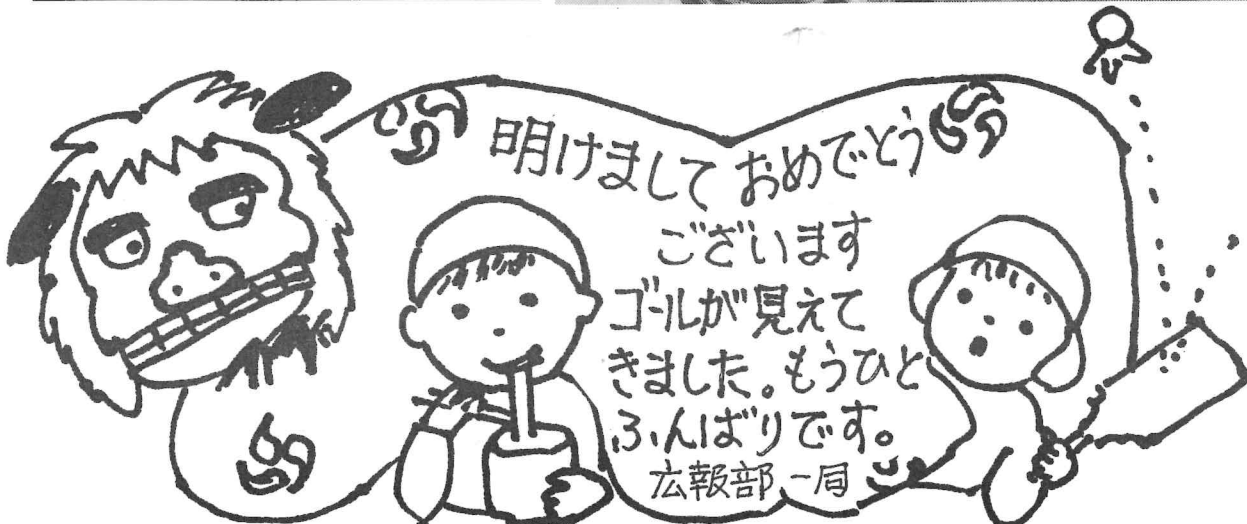 明けまして おめでとう
ございます
ゴールが見えて
きました。もうひと
ふんばりです。
広報部一同